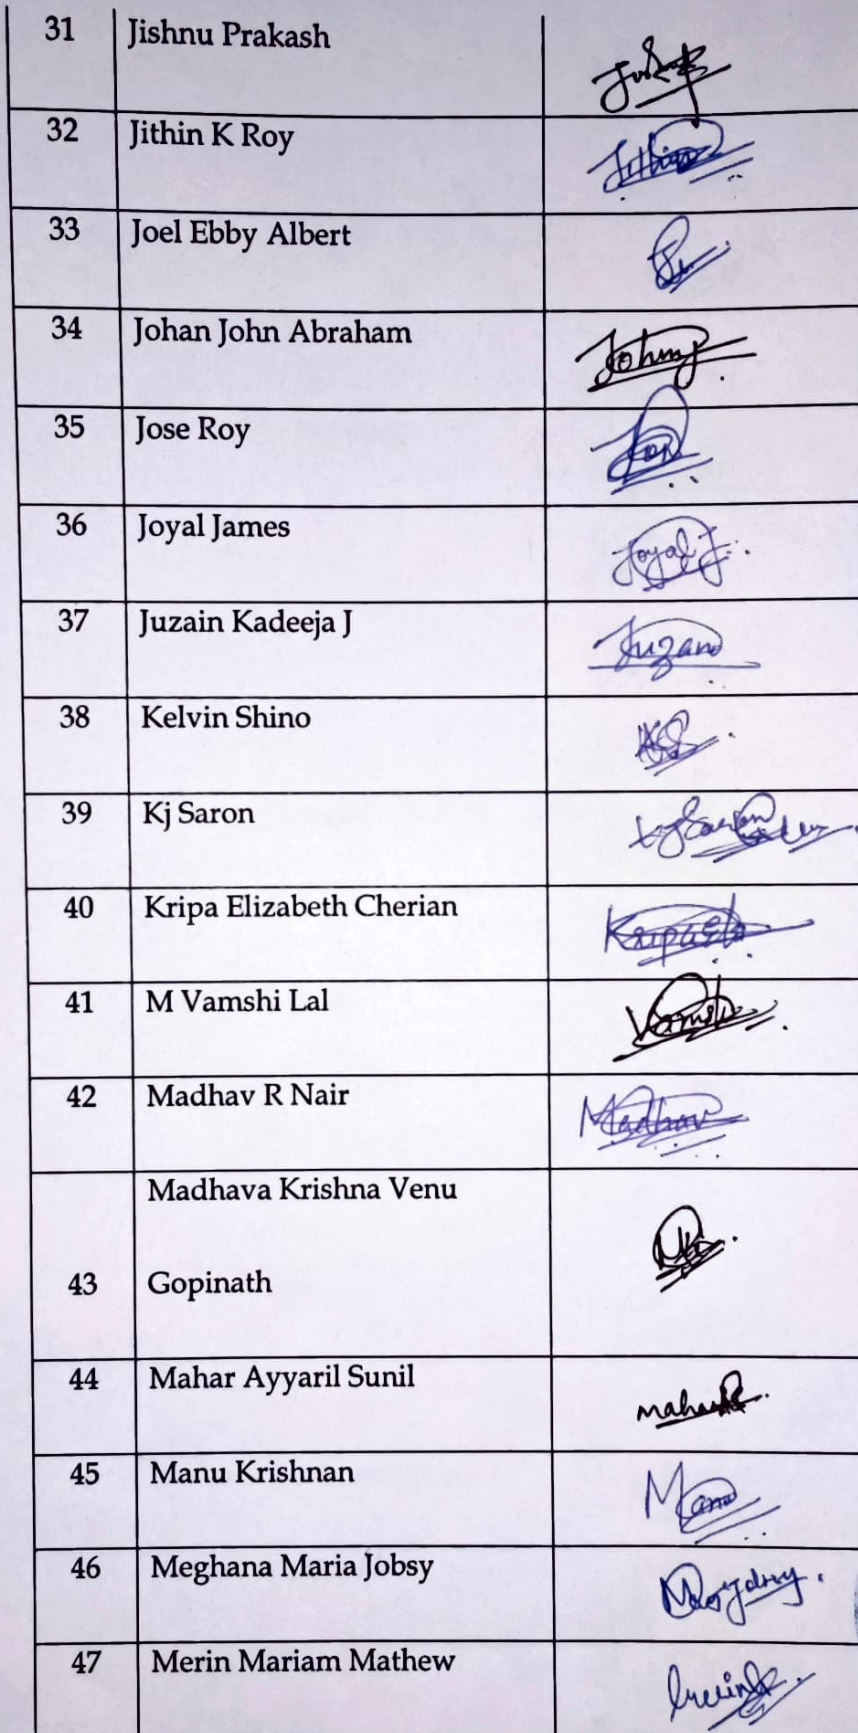 31 Jishnu Prakash
32 Jithin K Roy Jithin
33 Joel Ebby Albert
34 Johan John Abraham
35 Jose Roy
36 Joyal James Joyal J
37 Juzain Kadeeja J
38 Kelvin Shino
39 Kj Saron
40 Kripa Elizabeth Cherian
41 M Vamshi Lal Vamshi
42 Madhav R Nair Madhav
Madhava Krishna Venu
43 Gopinath
44 Mahar Ayyaril Sunil
45 Manu Krishnan
46 Meghana Maria Jobsy
47 Merin Mariam Mathew